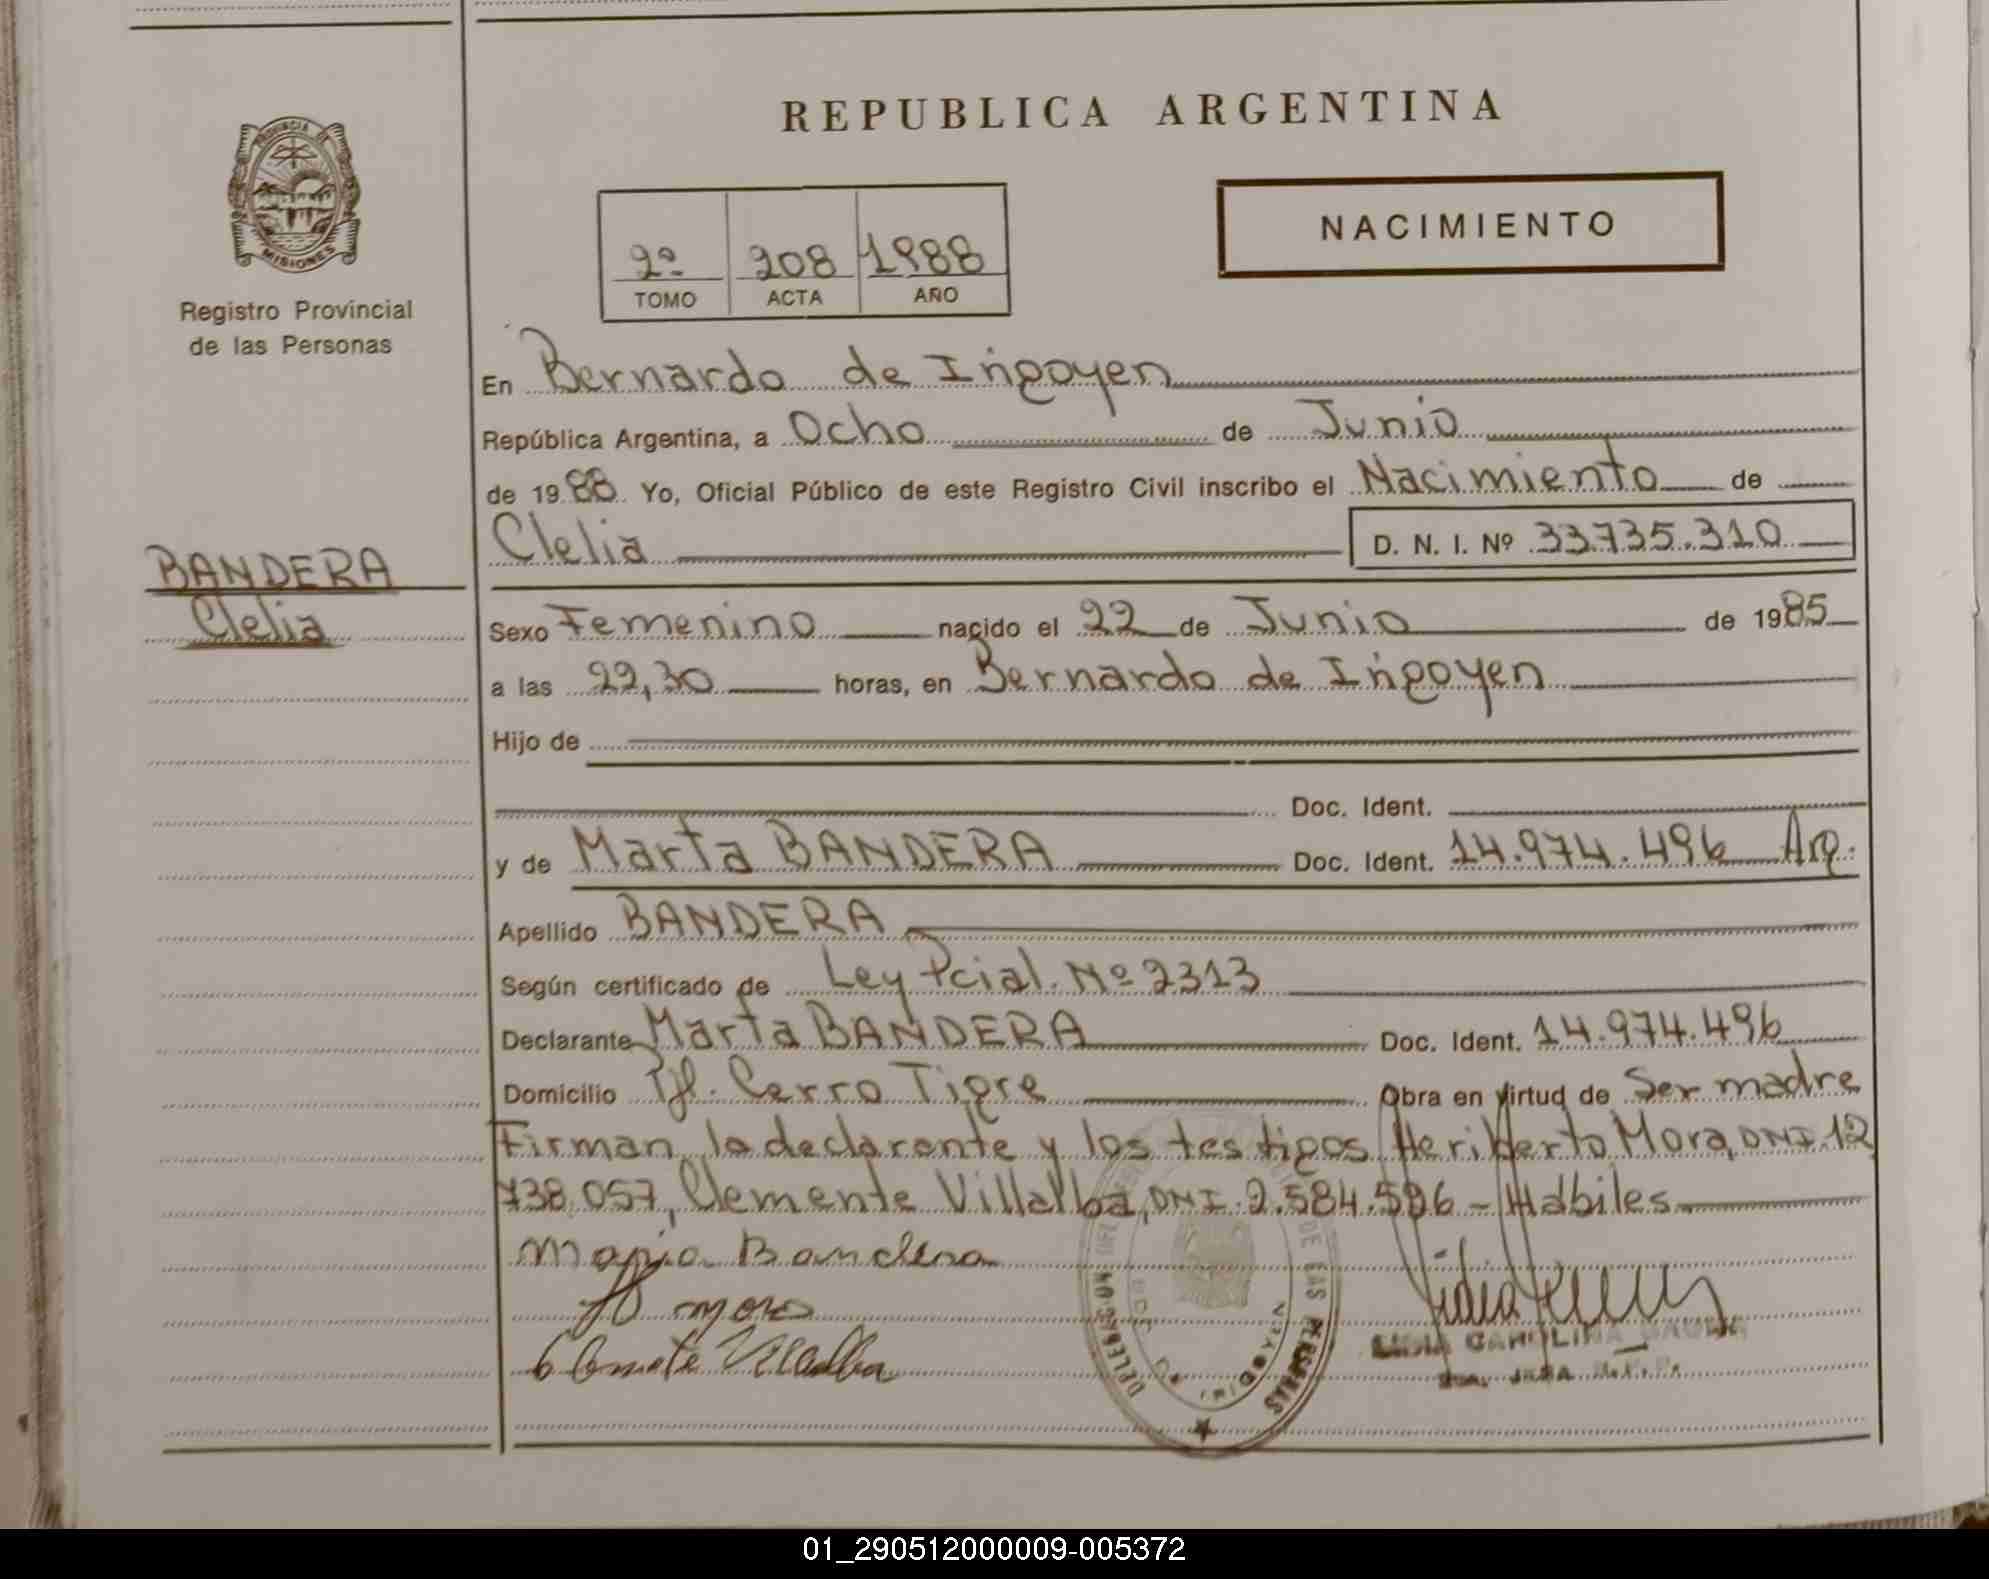 REPUBLICA ARGENTINA
PROVINCIA DE
MISIONES
Registro Provincial
de las Personas
NACIMIENTO
2º 208 1988
TOMO ACTA AÑO
En Bernardo de Irigoyen
República Argentina, a Ocho de Junio
de 1988 Yo, Oficial Público de este Registro Civil inscribo el Nacimiento de
Clelia D. N. I. Nº 33.735.310
BANDERA
Clelia
Sexo Femenino nacido el 22 de Junio de 1985
a las 22,30 horas, en Bernardo de Irigoyen
Hijo de
Doc. Ident.
y de Marta BANDERA Doc. Ident. 14.974.496 Arg.
Apellido BANDERA
Según certificado de Ley Pcial. Nº 2313
Declarante Marta BANDERA Doc. Ident. 14.974.496
Domicilio Cerro Tigre Obra en virtud de Ser madre
Firman la declarante y los testigos Heriberto Mora, DNI. 12
738.057, Clemente Villalba, DNI. 2.584.596 - Hábiles
Bandera
H mora
Clemente Villalba
DE LAS PERSONAS
CAROLINA
01_290512000009-005372